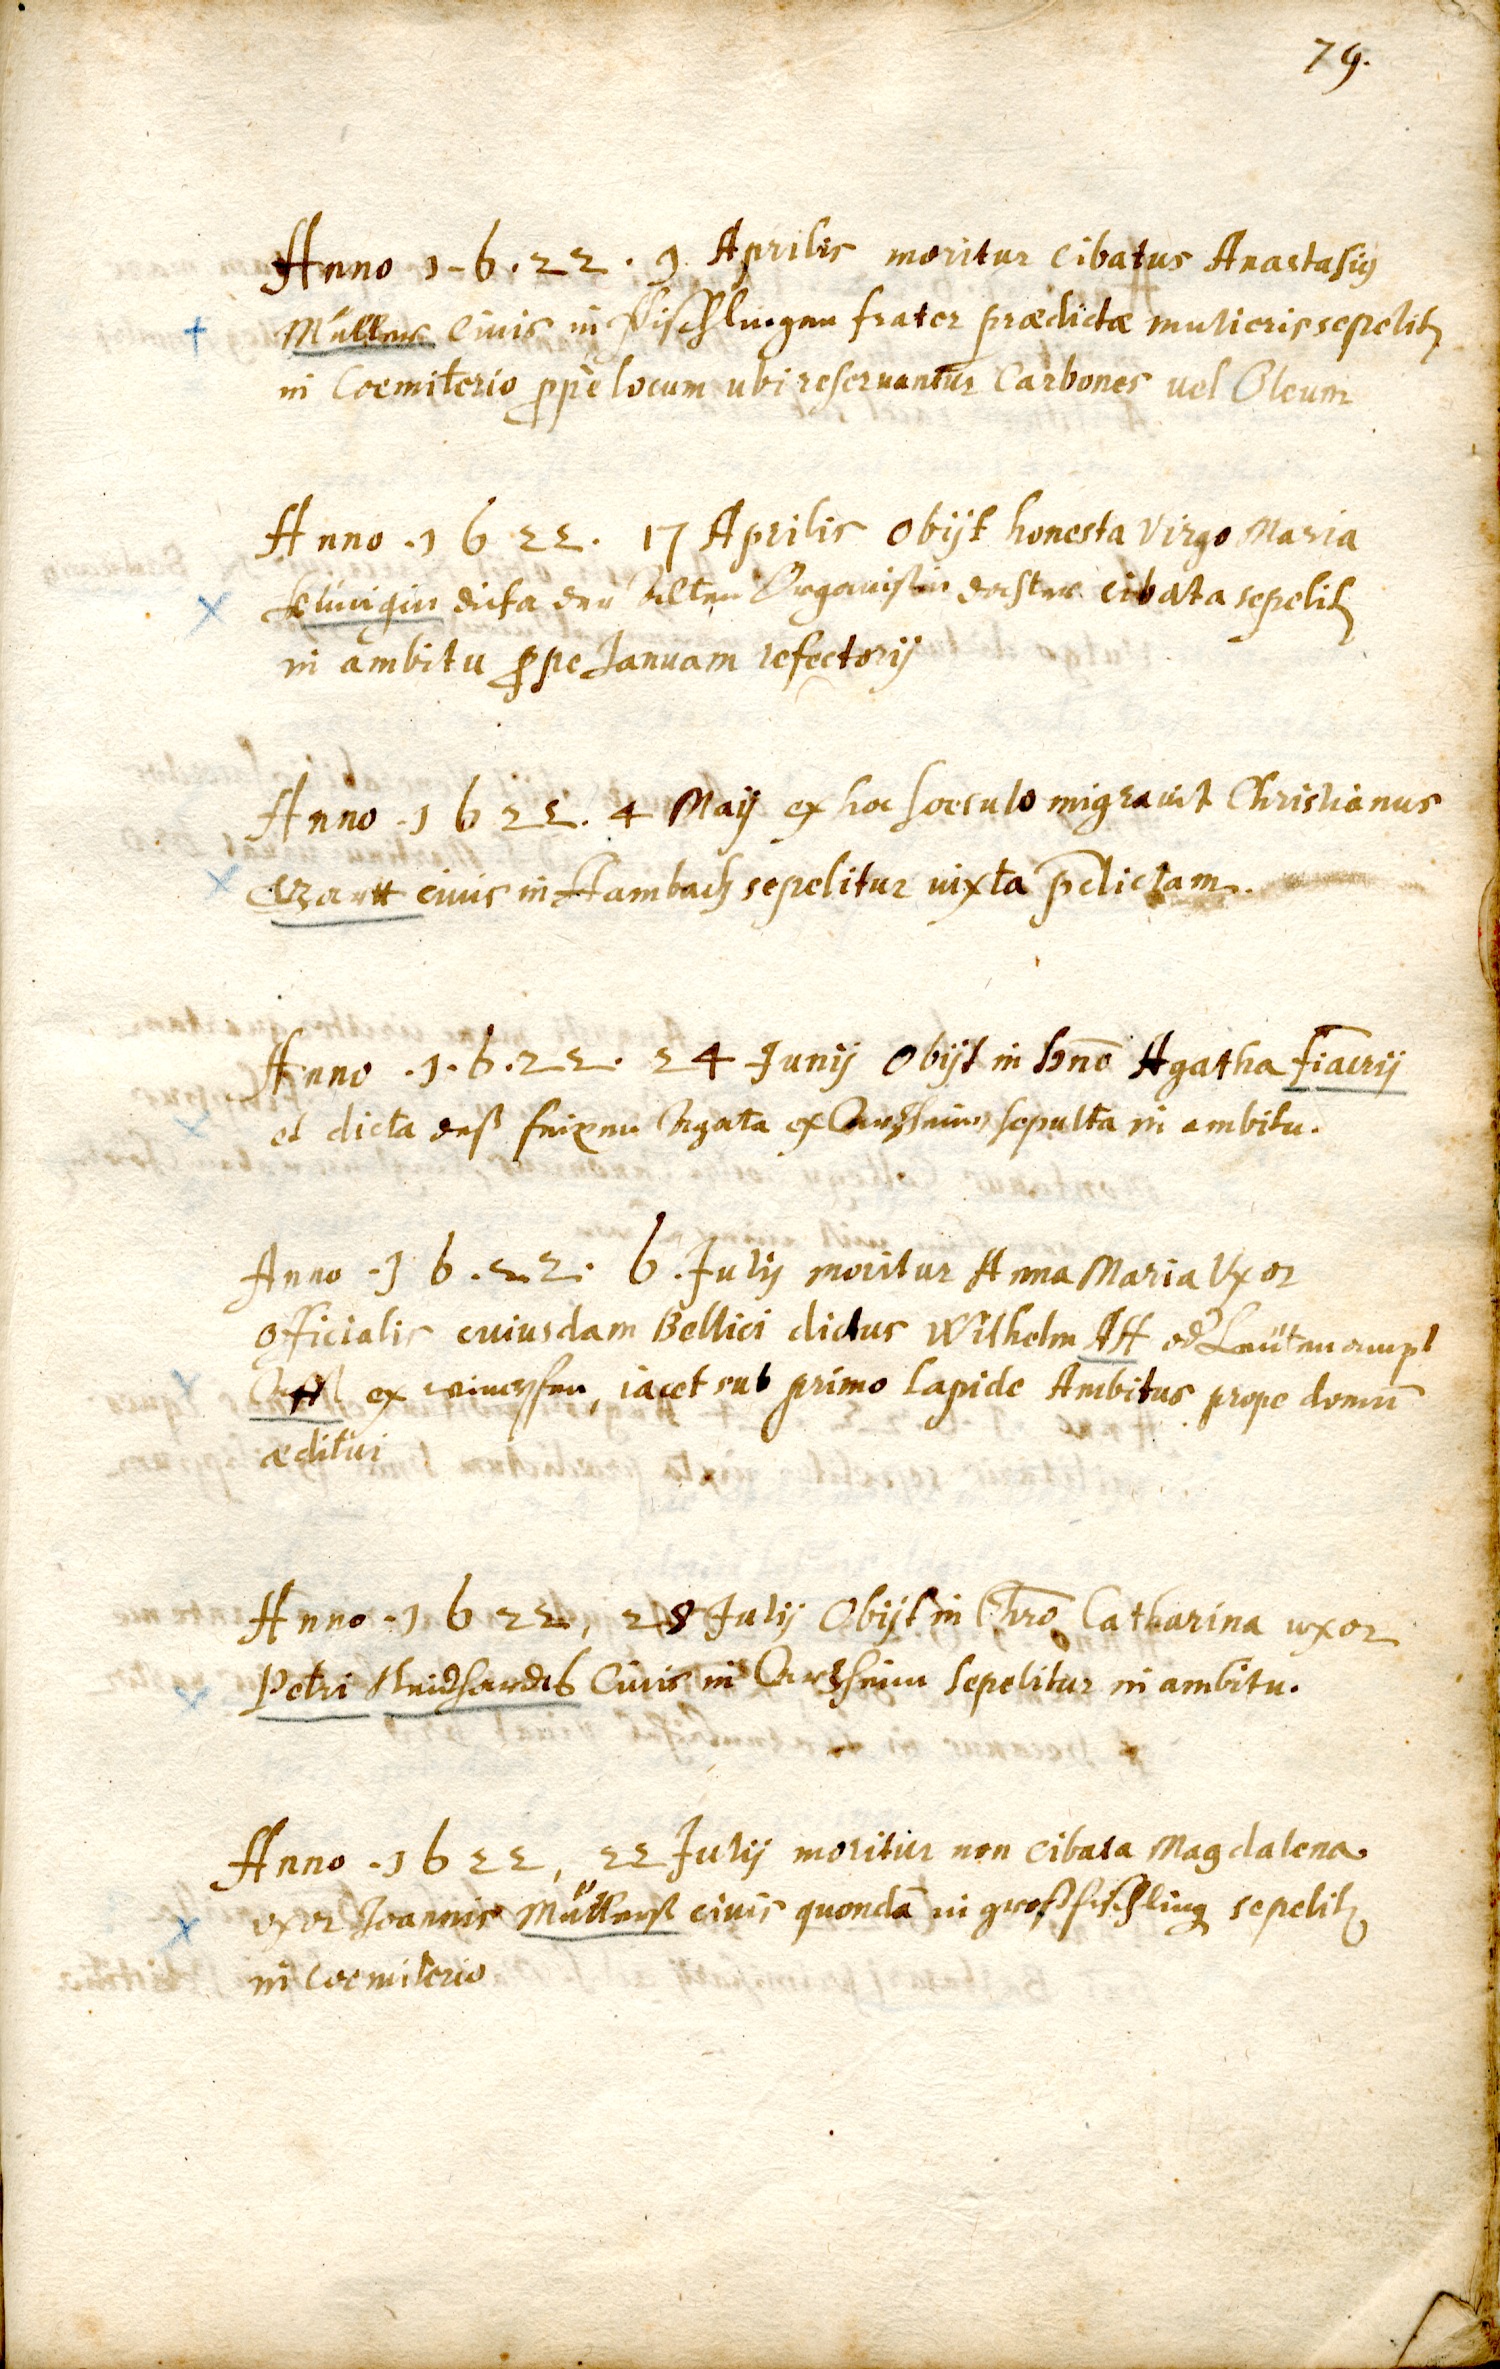 79.
Anno 1-6.22. 1 Aprilis moritur cibatus Anastasiꝰ
Müller Ciuis in Fischlingen frater prædictæ mulieris sepelitꝛ
in Coemiterio ꝓpe locum ubi reseruantur Carbones uel Oleum
Anno .1622. 17 Aprilis Obijt honesta Virgo Maria
dicta der Alten Organistin dochter cibata sepelitꝛ
in ambitu ꝓpe Januam refectorij
Anno .1622. 4 Maij ex hoc soeculo migrauit Christianus
ciuis in Hambach sepelitur iuxta p̄dictam.
Anno .1.6.22. 24 Junij Obijt in Dno Agatha Fiacrij
et dicta deß Agata ex sepulta in ambitu.
Anno .16.22. 6. Julij moritur Anna Maria Vxor
officialis cuiusdam Bellici dictus Wilhelm
ex iacet sub primo Lapide Ambitus prope domū
æditui
Anno .1622, 28 Julij Obijt in Chro Catharina uxor
Petri Neidhardts Ciuis in sepelitur in ambitu.
Anno .1622, 22 Julij moritur non cibata Magdalena
uxor Joannis Müllerß ciuis quondā in großfischling sepelitꝛ
in Coemiterio